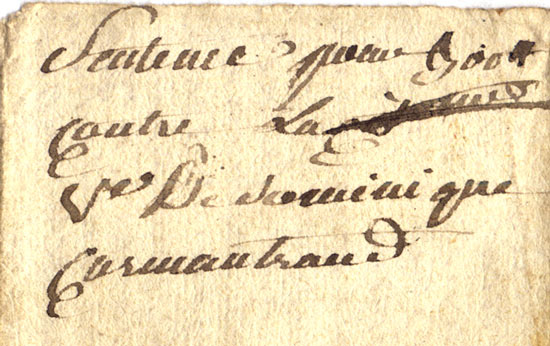 Sentence pour 300#
contre La
Ve De dominique
Cormantrand